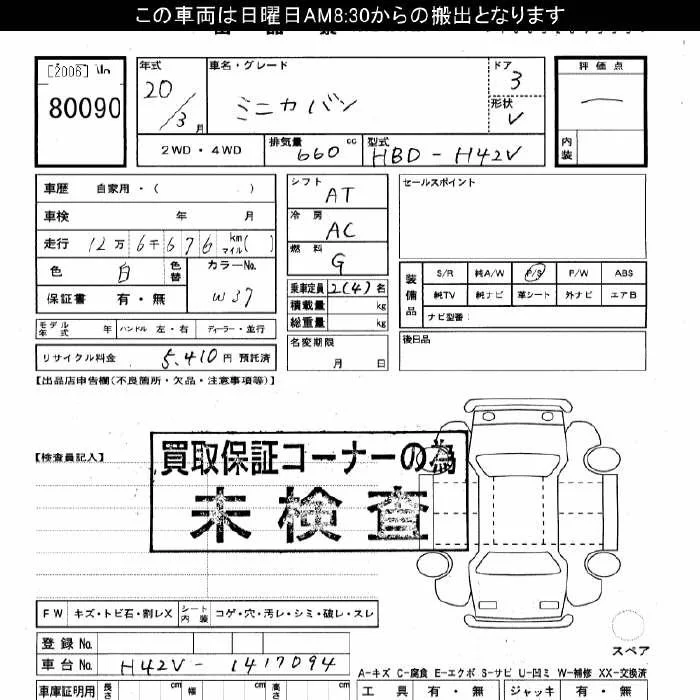 この車両は日曜日AM8:30からの搬出となります
[2006]
80090
年式
20/3月
車名・グレード
ミニカバン
ドア
3
形状
V
評価点
内装
2WD・4WD
排気量 660cc
型式 HBD-H42V
車歴 自家用・( )
車検 年 月
走行 12万6千676km マイル( )
色 白 色替
カラーNo.
W37
保証書 有・無
モデル年式 年 ハンドル 左・右 ディーラー・並行
リサイクル料金 5,410円 預託済
シフト AT
冷房 AC
燃料 G
乗車定員 2(4)名
積載量 kg
総重量 kg
名変期限
月 日
セールスポイント
装備品
S/R 純A/W P/S P/W ABS
純TV 純ナビ 革シート 外ナビ エアB
ナビ型番:
後日品
【出品店申告欄(不良箇所・欠品・注意事項等)】
【検査員記入】
買取保証コーナーの為
未検査
FW キズ・トビ石・割レX シート内装 コゲ・穴・汚レ・シミ・破レ・スレ
スペア
登録No.
車台No. H42V-1417094
A-キズ C-腐食 E-エクボ S-サビ U-凹ミ W-補修 XX-交換済
車庫証明用 長さ cm 幅 cm 高さ cm
工具 有・無 ジャッキ 有・無